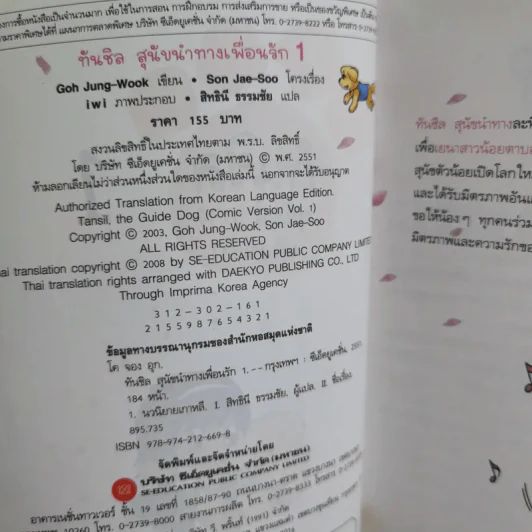 การซื้อหนังสือเป็นจำนวนมาก เพื่อใช้ในการสอน การฝึกอบรม การส่งเสริมการขาย หรือเป็นของขวัญพิเศษ เป็นต้น
ราคาพิเศษได้ที่ แผนกการตลาดพิเศษ บริษัท ซีเอ็ดยูเคชั่น จำกัด (มหาชน) โทร. 0-2739-8222 หรือ โทรสาร 0-2739
ทันชิล สุนัขนำทางเพื่อนรัก 1
Goh Jung-Wook เขียน • Son Jae-Soo โครงเรื่อง
iwi ภาพประกอบ • สิทธินี ธรรมชัย แปล
ราคา 155 บาท
สงวนลิขสิทธิ์ในประเทศไทยตาม พ.ร.บ. ลิขสิทธิ์
โดย บริษัท ซีเอ็ดยูเคชั่น จำกัด (มหาชน) © พ.ศ. 2551
ห้ามลอกเลียนไม่ว่าส่วนหนึ่งส่วนใดของหนังสือเล่มนี้ นอกจากจะได้รับอนุญาต
Authorized Translation from Korean Language Edition.
Tansil, the Guide Dog (Comic Version Vol. 1)
Copyright © 2003, Goh Jung-Wook, Son Jae-Soo
ALL RIGHTS RESERVED
hai translation copyright © 2008 by SE-EDUCATION PUBLIC COMPANY LIMITE
Thai translation rights arranged with DAEKYO PUBLISHING CO., LTD
Through Imprima Korea Agency
312-302-161
2 1 5 5 9 8 7 6 5 4 3 2 1
ข้อมูลทางบรรณานุกรมของสำนักหอสมุดแห่งชาติ
โค จอง อุก.
ทันชิล สุนัขนำทางเพื่อนรัก 1.--กรุงเทพฯ : ซีเอ็ดยูเคชั่น, 2551.
184 หน้า.
1. นวนิยายเกาหลี. I. สิทธินี ธรรมชัย, ผู้แปล. II. ชื่อเรื่อง.
895.735
ISBN 978-974-212-669-8
จัดพิมพ์และจัดจำหน่ายโดย
บริษัท ซีเอ็ดยูเคชั่น จำกัด (มหาชน)
SE-EDUCATION PUBLIC COMPANY LIMITED
อาคารเนชั่นทาวเวอร์ ชั้น 19 เลขที่ 1858/87-90 ถนนบางนา-ตราด แขวงบางนา
10260 โทร. 0-2739-8000
ทันชิล สุนัขนำทางและ
เพื่อเยนาสาวน้อยตาบอ
สุนัขตัวน้อยเปิดโลกให
และได้รับมิตรภาพอัน
ขอให้น้องๆ ทุกคนร่วม
มิตรภาพและความรักขอ